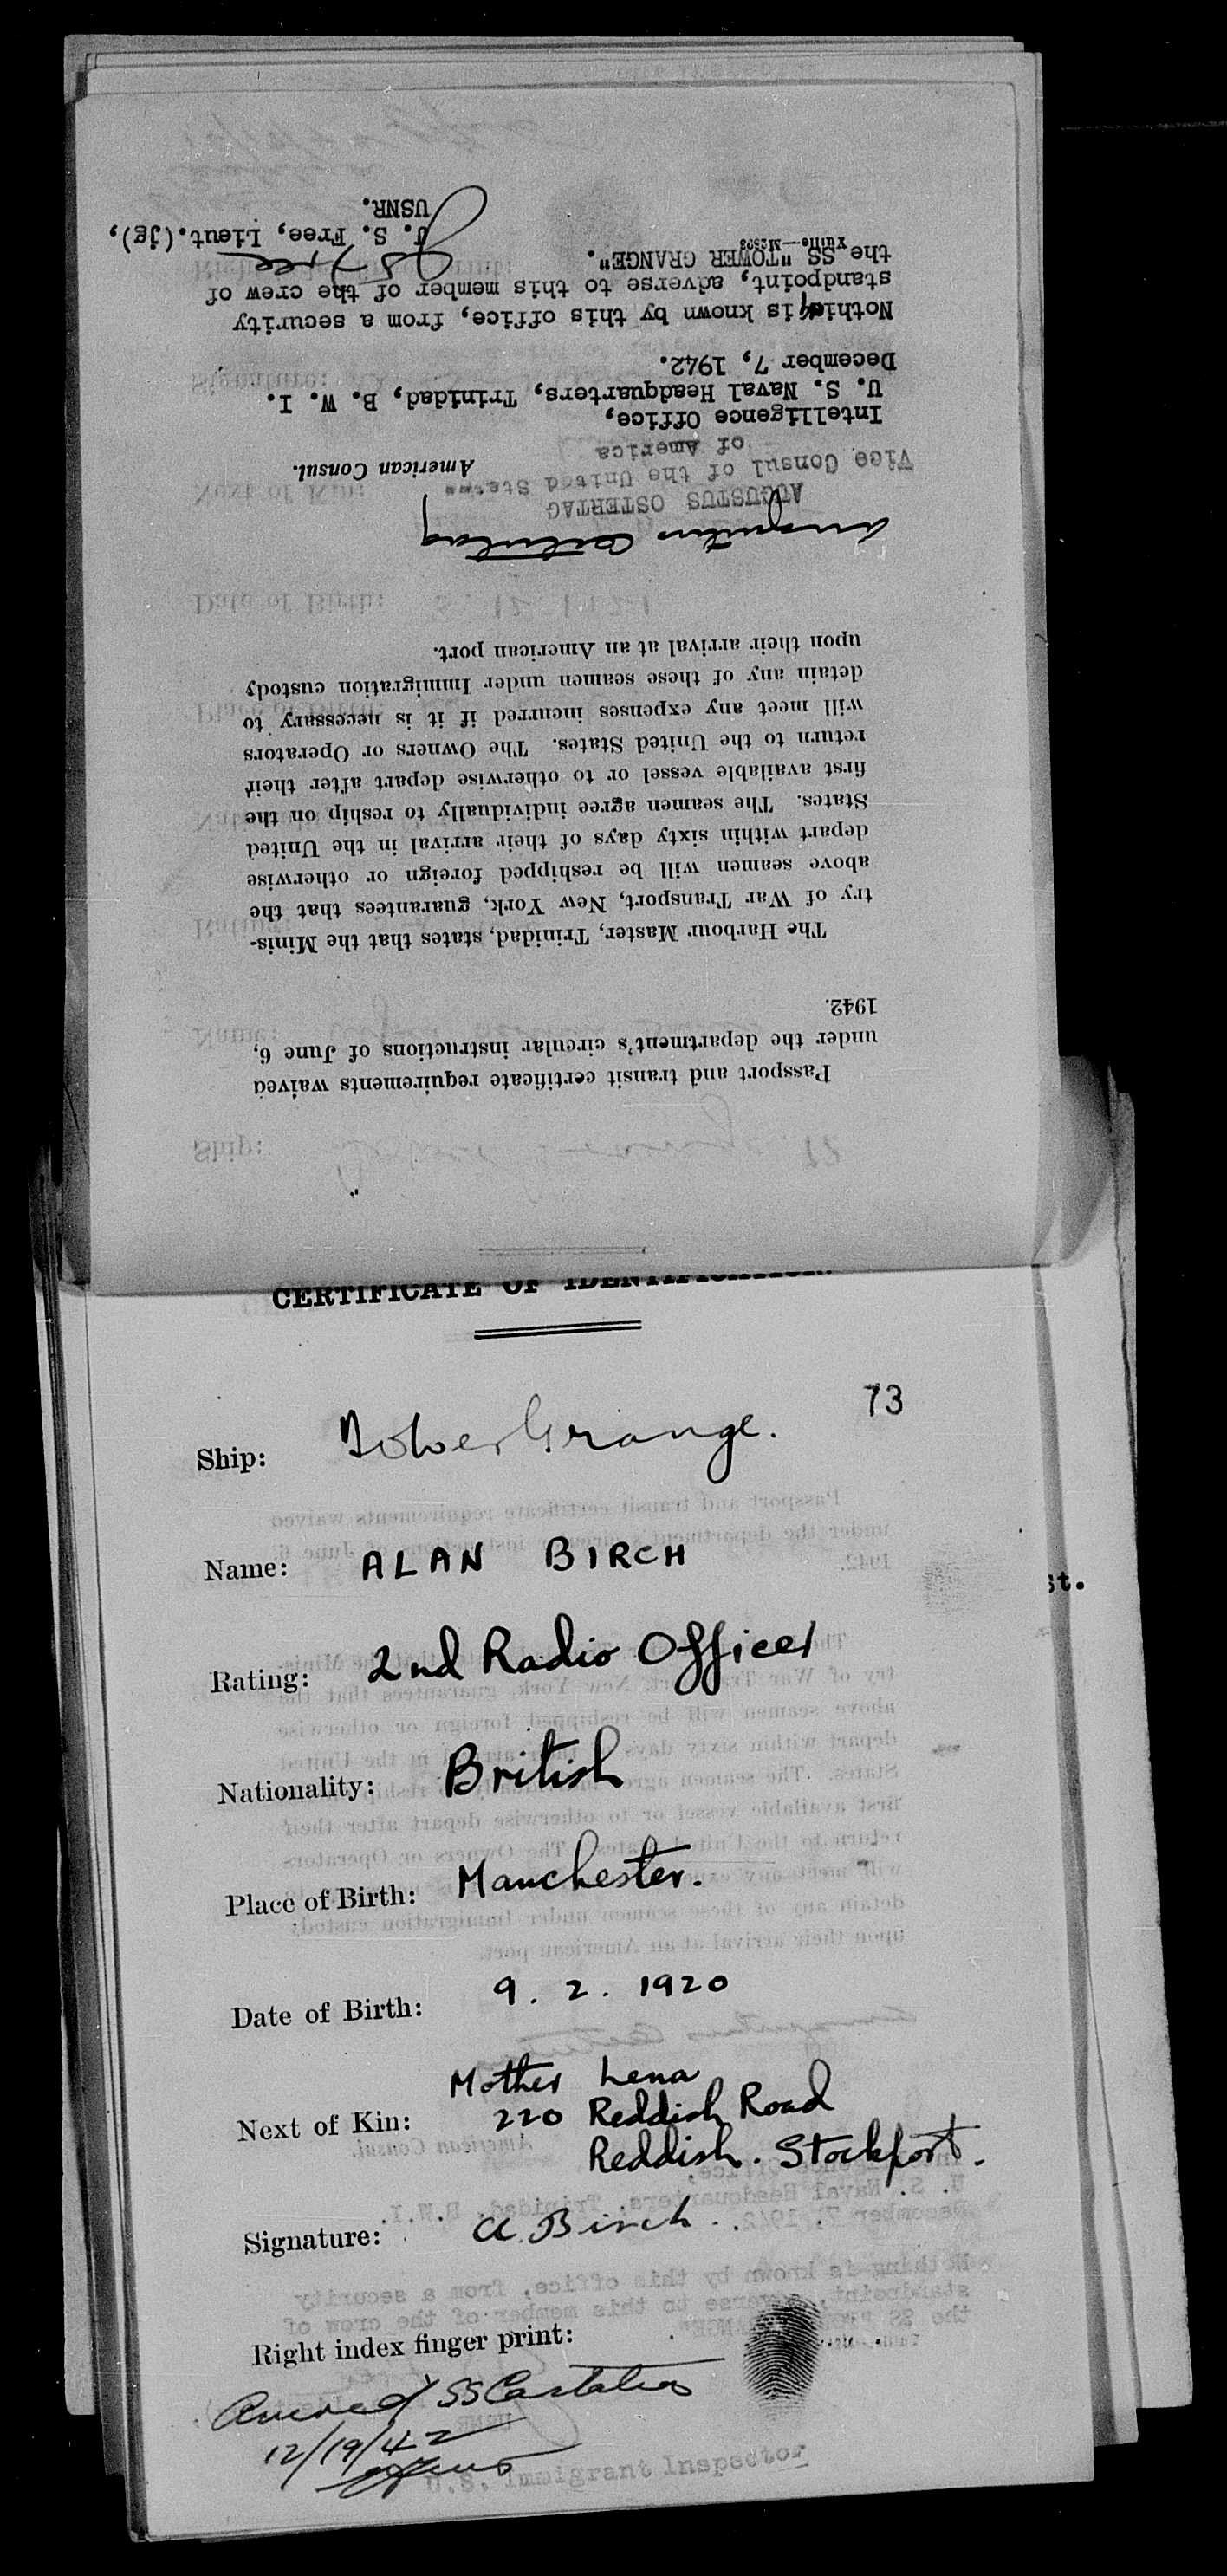 Passport and transit certificate requirements waived
under the department's circular instructions of June 6,
1942.
The Harbour Master, Trinidad, states that the Minis-
try of War Transport, New York, guarantees that the
above seamen will be reshipped foreign or otherwise
depart within sixty days of their arrival in the United
States. The seamen agree individually to reship on the
first available vessel or to otherwise depart after their
return to the United States. The Owners or Operators
will meet any expenses incurred if it is necessary to
detain any of these seamen under Immigration custody
upon their arrival at an American port.
Augustus Ostertag
AUGUSTUS OSTERTAG
Vice Consul of the United States
of America
American Consul.
Intelligence Office,
U. S. Naval Headquarters, Trinidad, B. W. I.
December 7, 1942.
Nothing is known by this office, from a security
standpoint, adverse to this member of the crew of
the SS "TOWER GRANGE".
Yuille.—M2303
J S Free
J. S. Free, Lieut.(jg),
USNR.
CERTIFICATE OF IDENTIFICATION
73
Ship: Tower Grange.
Name: ALAN BIRCH
Rating: 2nd Radio Officer
Nationality: British
Place of Birth: Manchester.
Date of Birth: 9. 2. 1920
Mother Lena
Next of Kin: 220 Reddish Road
Reddish. Stockport.
Signature: A. Birch.
Right index finger print:
Arrived SS
12/19/42
U.S. Immigrant Inspector
st.